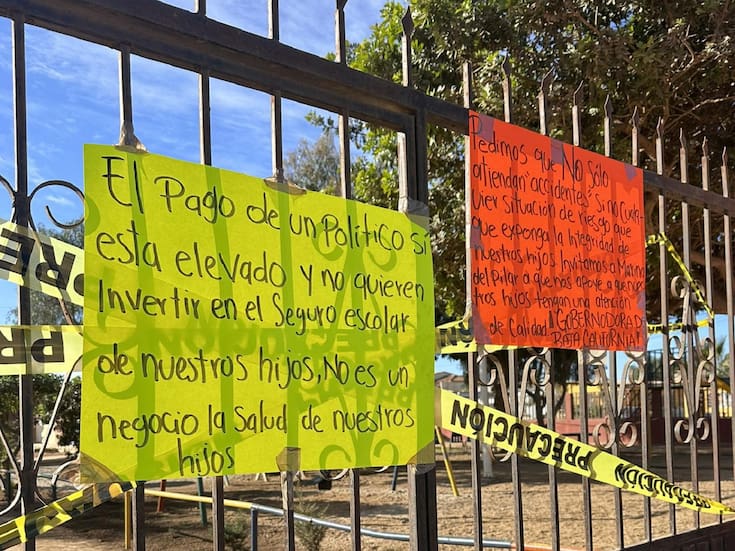 El Pago de un Político si
esta elevado y no quieren
Invertir en el Seguro escolar
de nuestros hijos, No es un
negocio la Salud de nuestros
hijos
Pedimos que No sólo
atiendan "accidentes" Si no Cual
Uier Situación de riesgo que
que exponga la Integridad de
nuestros hijos Invitamos a Marina
del Pilar a que nos apoye a que nues
tros hijos tengan una atención
de Calidad!! GOBERNODORA D
BAJA CALIFORNIA!
PRE
PRE
PRECAUCIÓN
PRECAUCIÓN